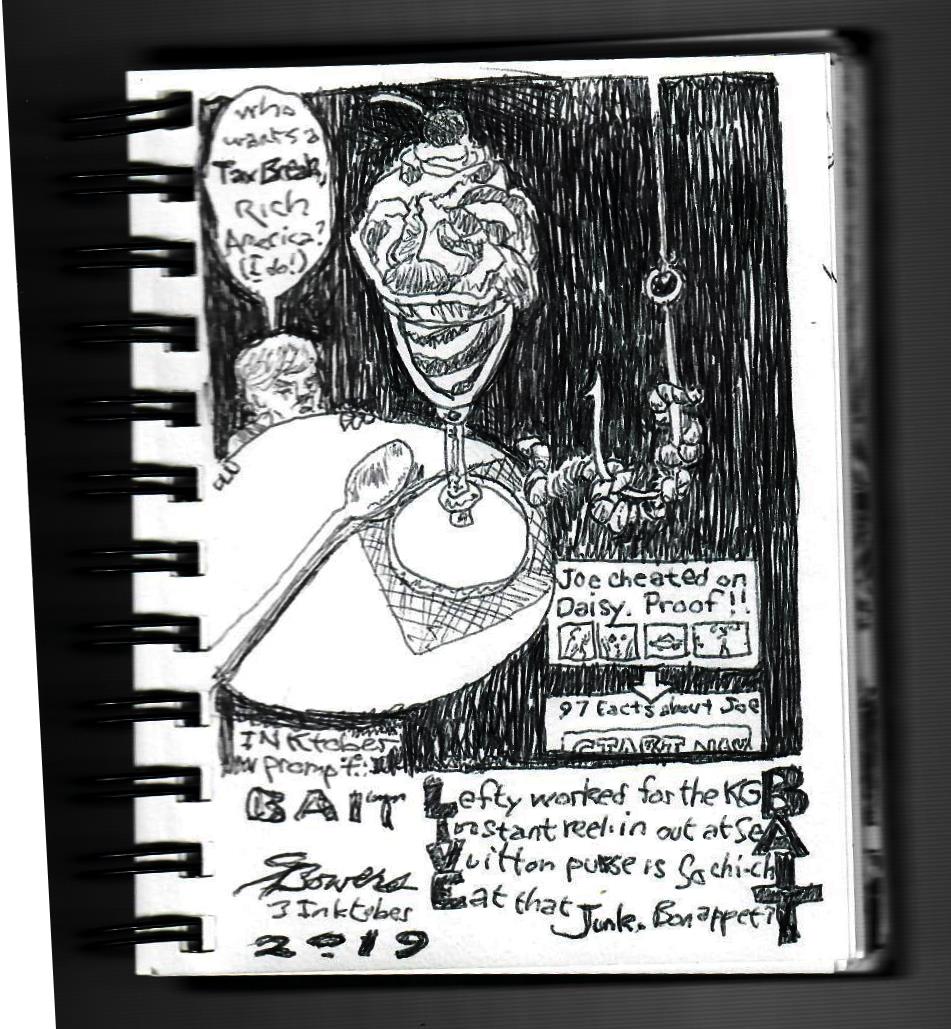 Who
wants a
Tax Break,
Rich
America?
(I do!)
Joe cheated on
Daisy. Proof!!
97 Facts about Joe
START NOW
INKtober
prompt:
BAIT
Lefty worked for the KGB
Instant reel: in out at SeA
Vuitton purse is So chi-chI
Eat that Junk. Bon appetiT
SBowers
3 Inktober
2019